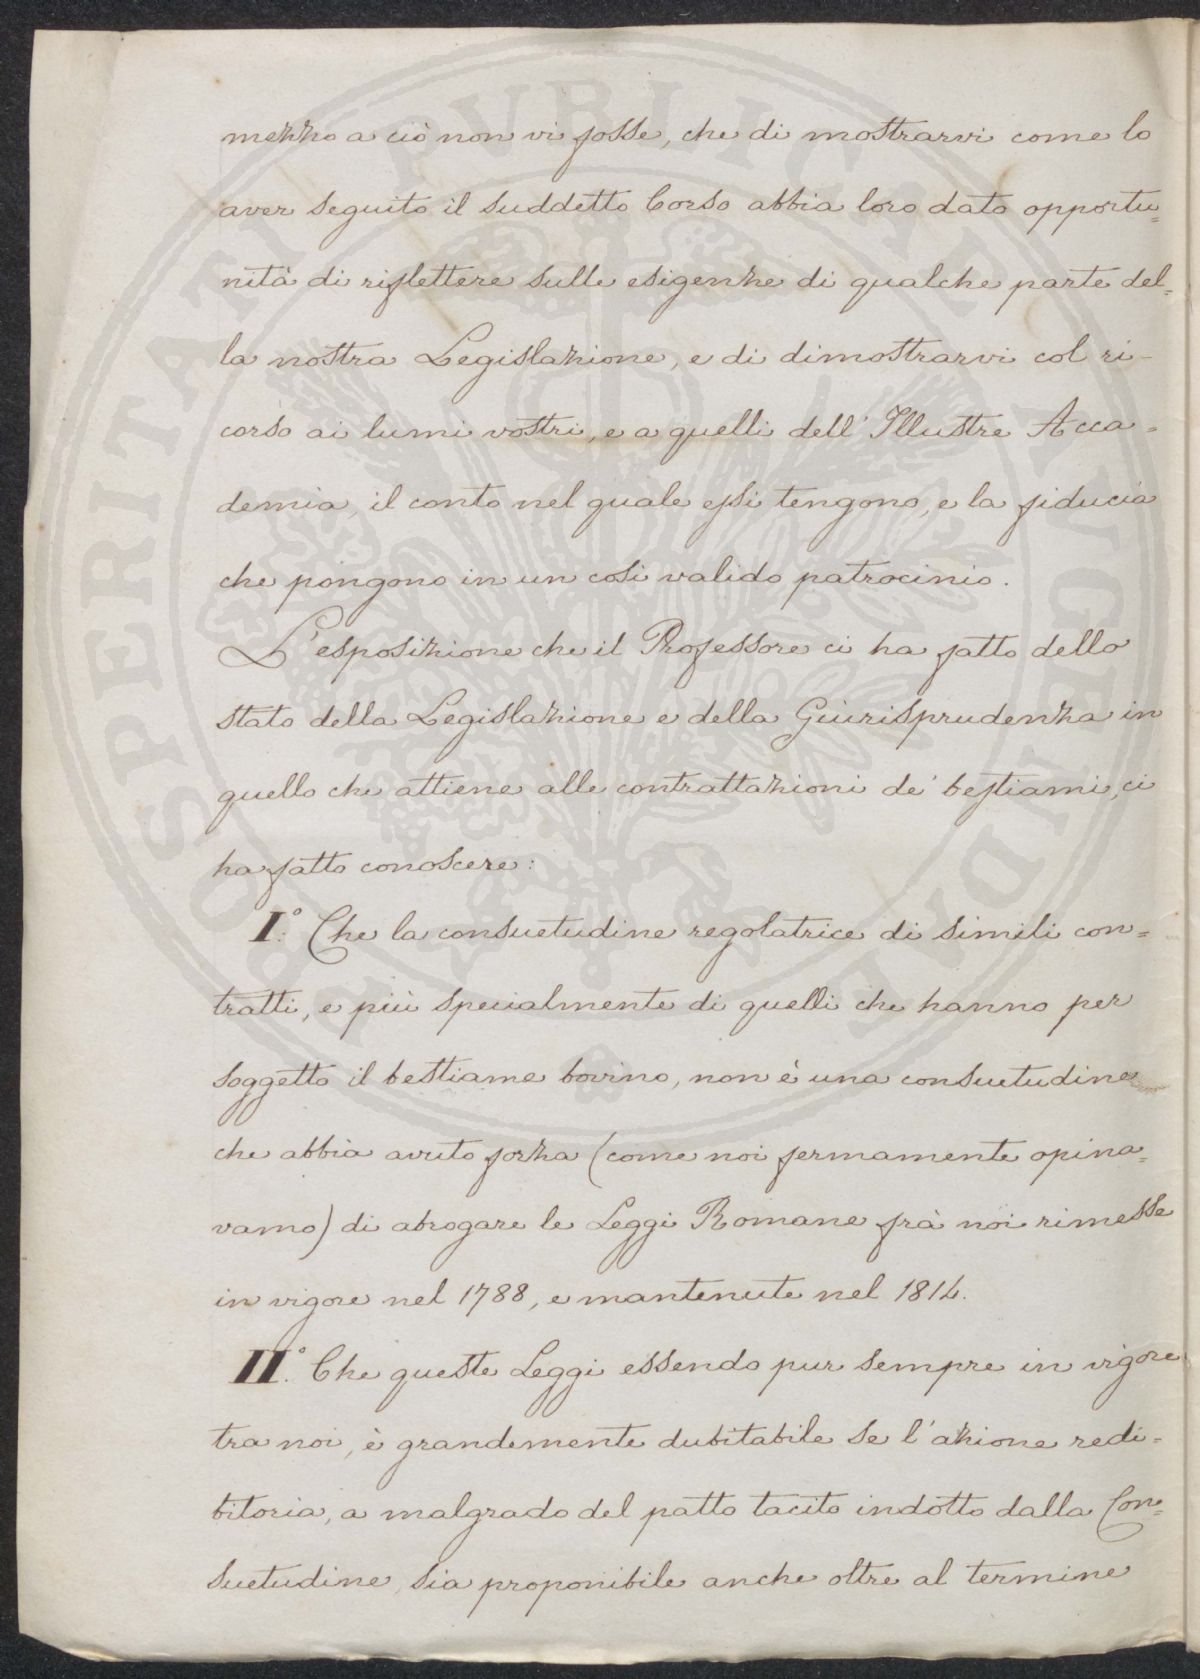 mezzo a ciò non vi fosse, che di mostrarvi come lo
aver seguito il suddetto Corso abbia loro dato opportu=
nità di riflettere sulle esigenze di qualche parte del=
la nostra Legislazione, e di dimostrarvi col ri-
corso ai lumi vostri, e a quelli dell' Illustre Acca=
demia, il conto nel quale essi tengono, e la fiducia
che pongono in un così valido patrocinio.
L'esposizione che il Professore ci ha fatto dello
stato della Legislazione e della Giurisprudenza in
quello che attiene alle contrattazioni de' bestiami, ci
ha fatto conoscere:
I.° Che la consuetudine regolatrice di simili con=
tratti, e più specialmente di quelli che hanno per
soggetto il bestiame bovino, non è una consuetudine
che abbia avuto forza (come noi fermamente opina=
vamo) di abrogare le Leggi Romane frà noi rimesse
in vigore nel 1788, e mantenute nel 1814.
II.° Che queste Leggi essendo pur sempre in vigore
tra noi, è grandemente dubitabile se l'azione redi=
bitoria, a malgrado del patto tacito indotto dalla Con=
suetudine, sia proponibile anche oltre al termine
PROSPERITATI PUBLICAE AUGENDAE